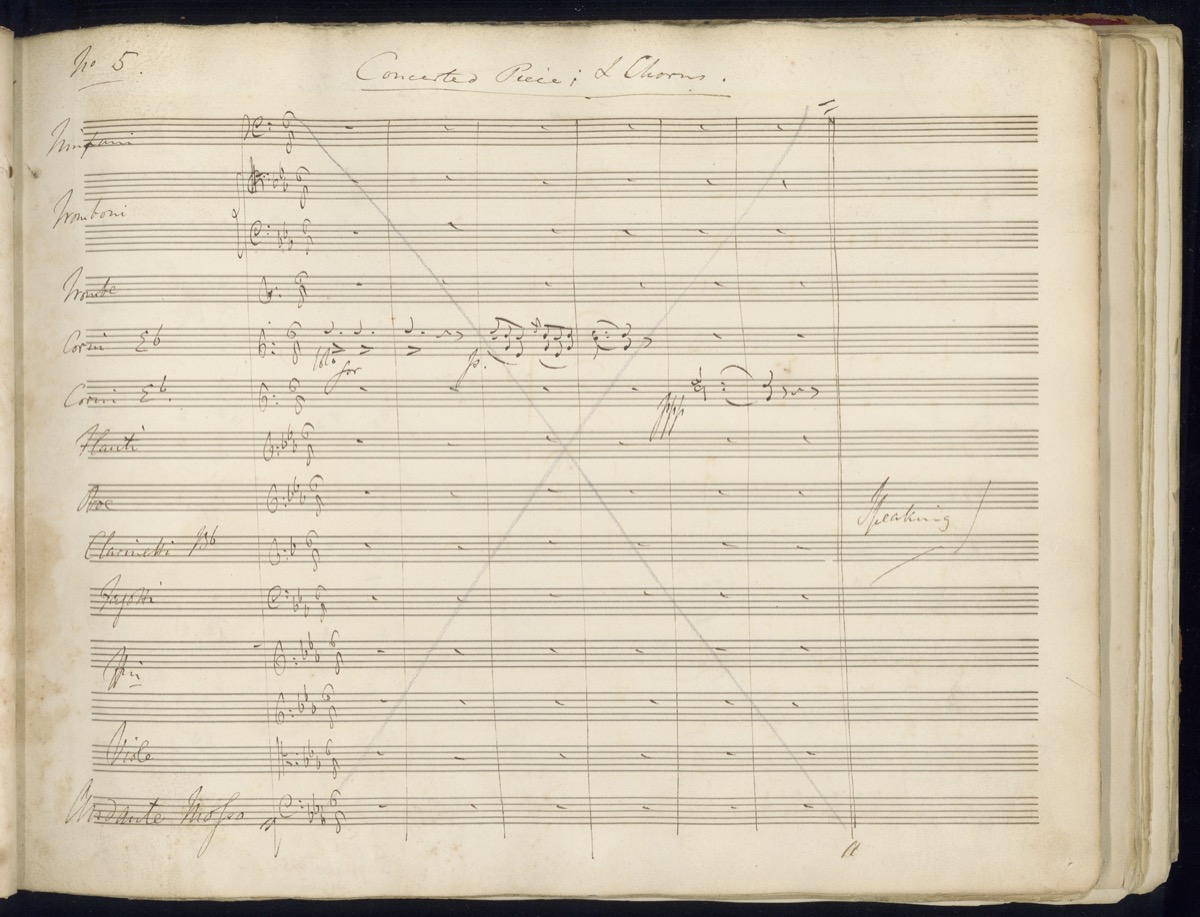 No 5.
Concerted Piece; & Chorus.
Timpani
Tromboni
Trombe
Corni Eb
solo
for
p.
Corni Eb.
ppp
Flauti
Oboe
Speaking
Clarinetti Bb
Fagotti
Viole
Andante Mosso